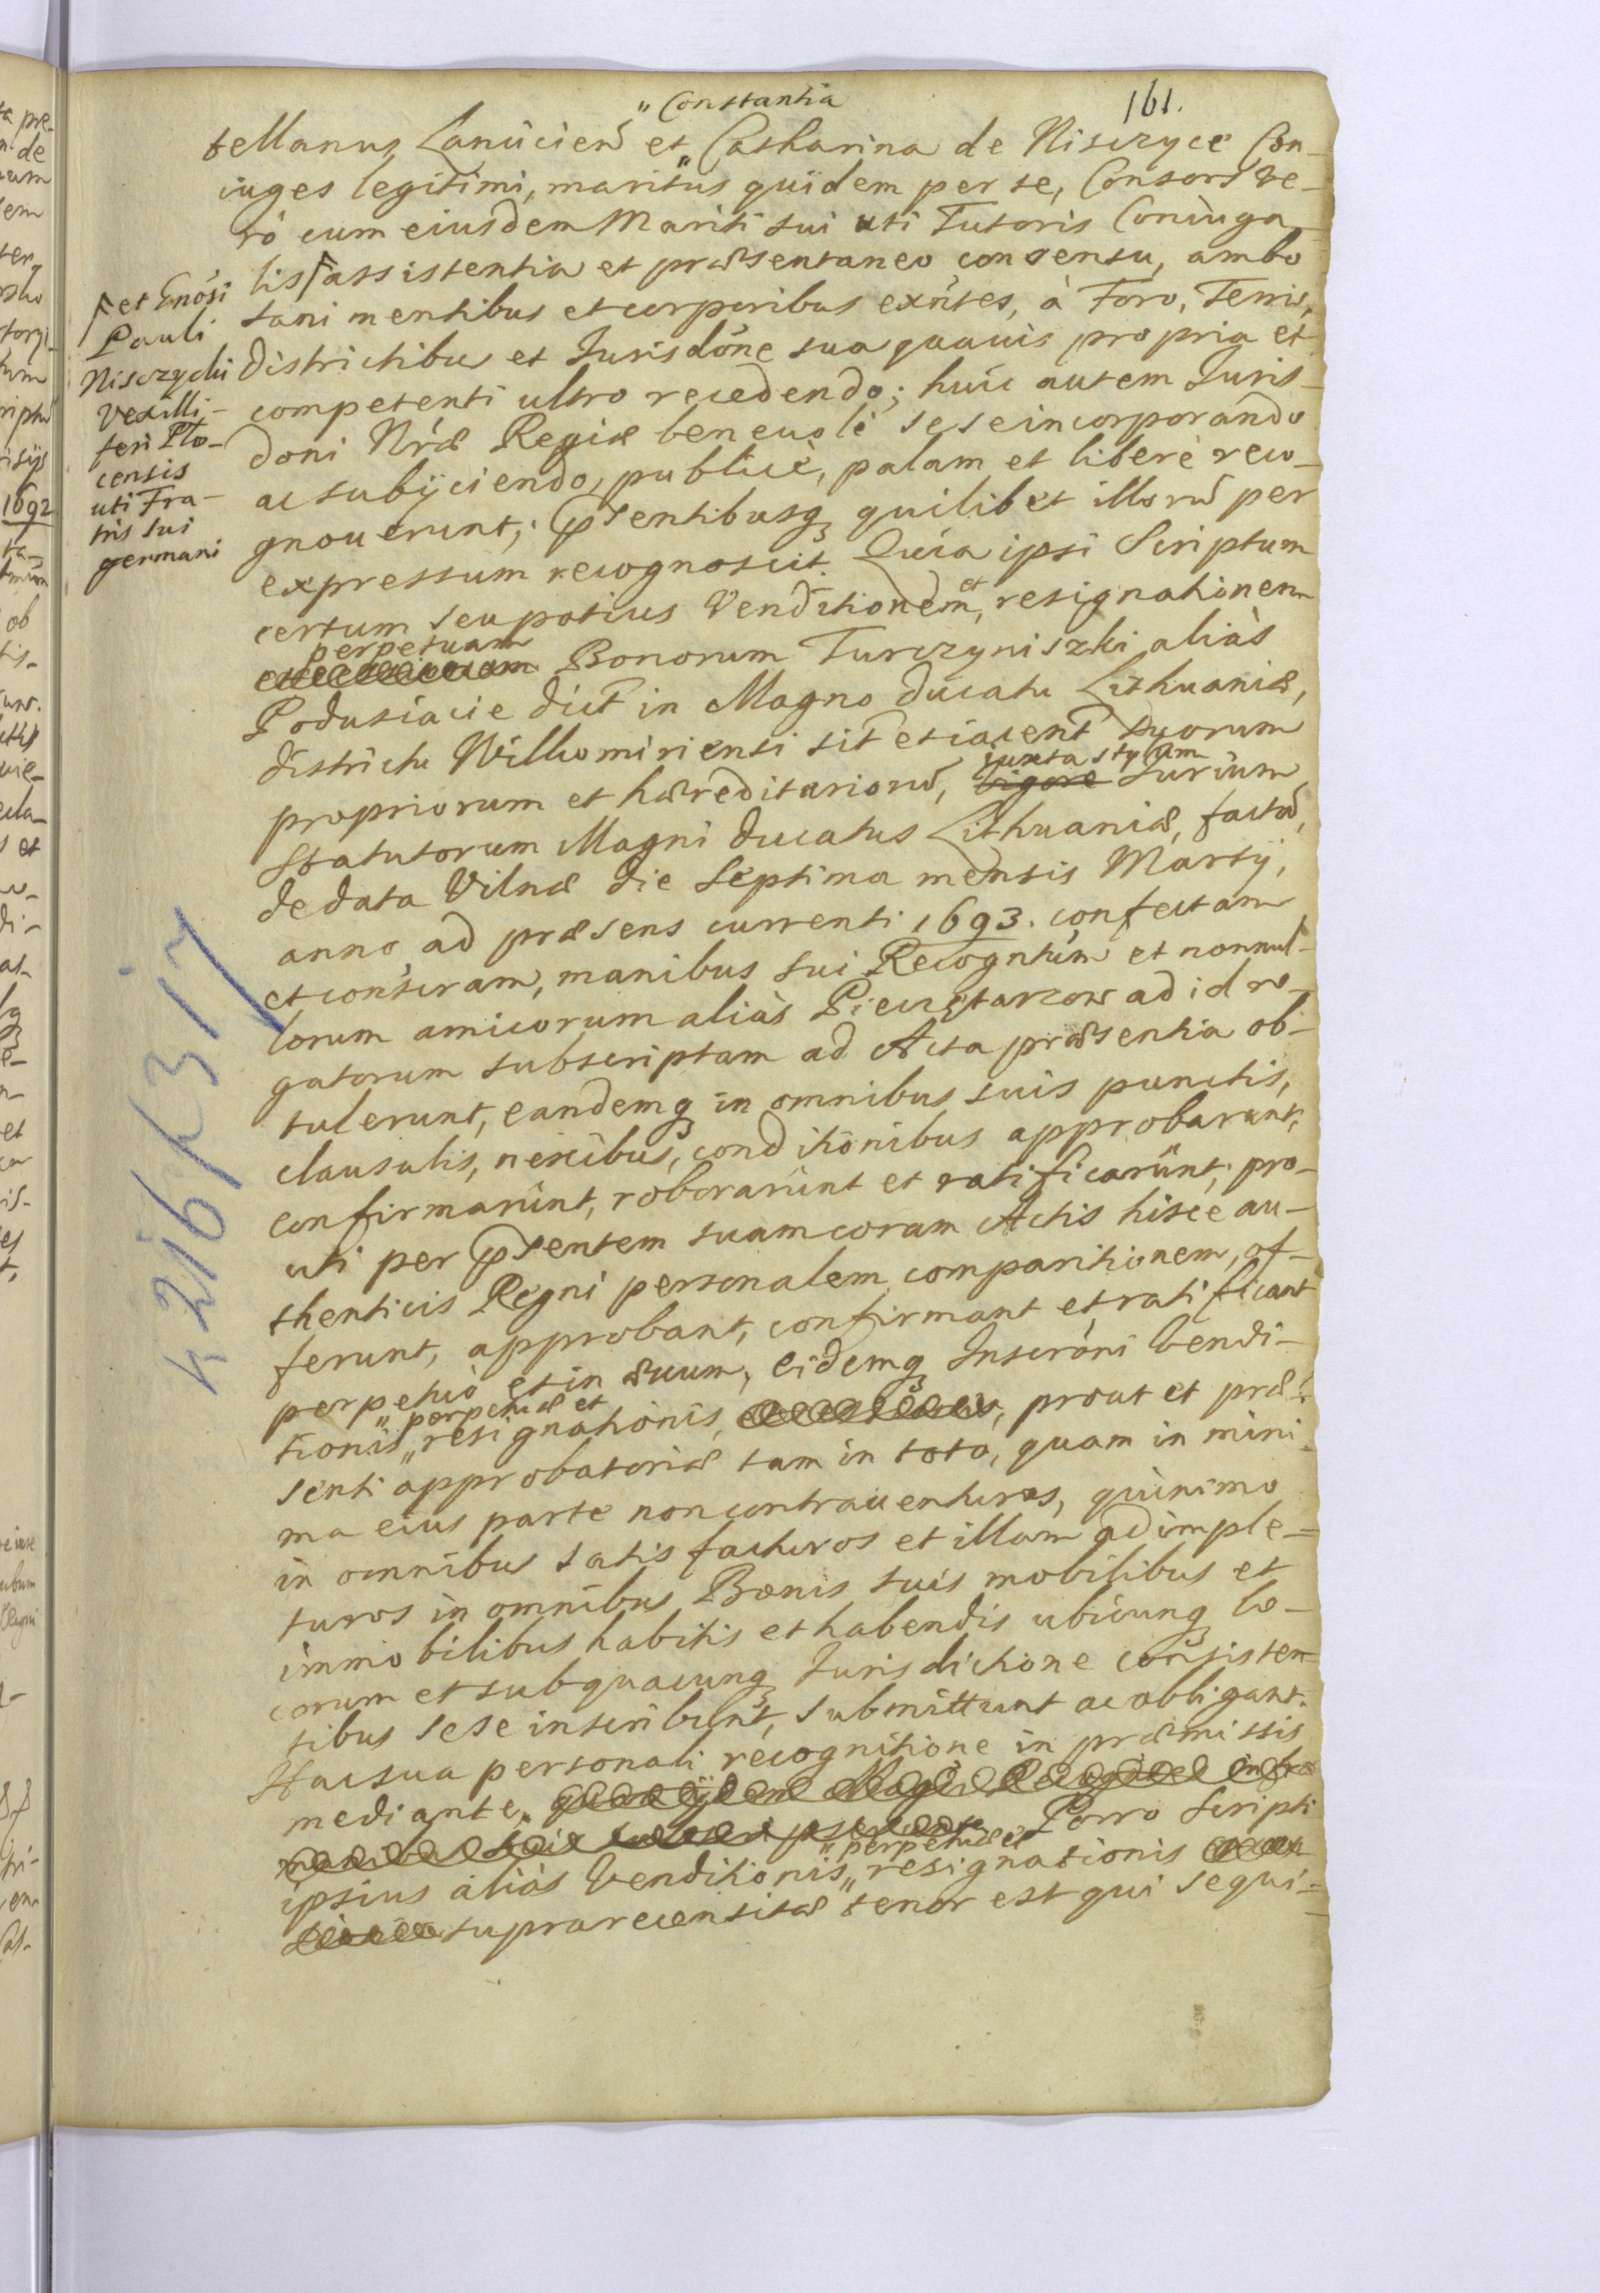 161.
„ Constantia
tellanus Lanicien̄ et „ Catharina de Niszczyce Con-
iuges legitimi, maritus quidem per se, Consors ve-
rò cum eiusdem Mariti sui uti Tutoris Coniuga-
lis assistentia et præsentaneo consensu, ambo
sani mentibus et corporibus exñtes, à Foro, Terris,
Districtibus et Jurisdōne sua quauis propria et
competenti ultro recedendo; huic autem Juris-
doni Nr̄æ Regiæ beneuolè sese incorporando
ac subijciendo, publicè, palam et liberè reco-
gnouerunt; p̄sentibusq quilibet illorū per
expressum recognoscit. Quia ipsi Scriptum
certum seu potius Venditionem et resignationem
perpetuam
Bonorum Turczyniszki aliàs
Podusiacie dict̄ in Magno Ducatu Lithuaniæ,
districtu Willkomiriensi sit̄ et iacent̄ suorum
iuxta stylum
propriorum et hæreditariorū, vigore Jurium
Statutorum Magni Ducatus Lithuaniæ, factā,
de data Vilnæ die Septima mensis Martÿ,
anno ad præsens currenti 1693. confectam
et conscram, manibus sui Recogntiūm et nonnul-
lorum amicorum aliàs Pieczętarzow ad id ro-
gatorum subscriptam ad Acta præsentia ob-
tulerunt, eandemq in omnibus suis punctis,
clausulis, nexibus, conditionibus approbarunt,
confirmarunt, roborarunt et ratificarunt; pro-
uti per p̄sentem suam coram Actis hisce au-
thenticis Regni personalem comparitionem, of-
ferunt, approbant, confirmant et ratificant
perpetuò et in æuum, eidemq Inscrōni Vendi-
„ perpetuæ et
tionis „ resignationis, prout et præ-
senti approbatoriæ tam in toto, quam in mini-
ma eius parte non contrauenturos, quinimo
in omnibus satisfacturos et illam adimple-
turos in omnibus Bonis suis mobilibus et
immobilibus habitis et habendis ubicunq lo-
corum et sub quacunq Jurisdictione consisten-
tibus sese inscribunt, submittunt ac obligant.
Hac sua personali recognitione in præmissis
mediante,
Porro Scripti
„ perpetuæ et
ipsius aliàs Venditionis „ resignationis
supra recensitæ tenor est qui sequi-
et Gnōsi
Pauli
Niszczycki
Vexilli-
feri Plo-
censis
uti Fra-
tris sui
germani